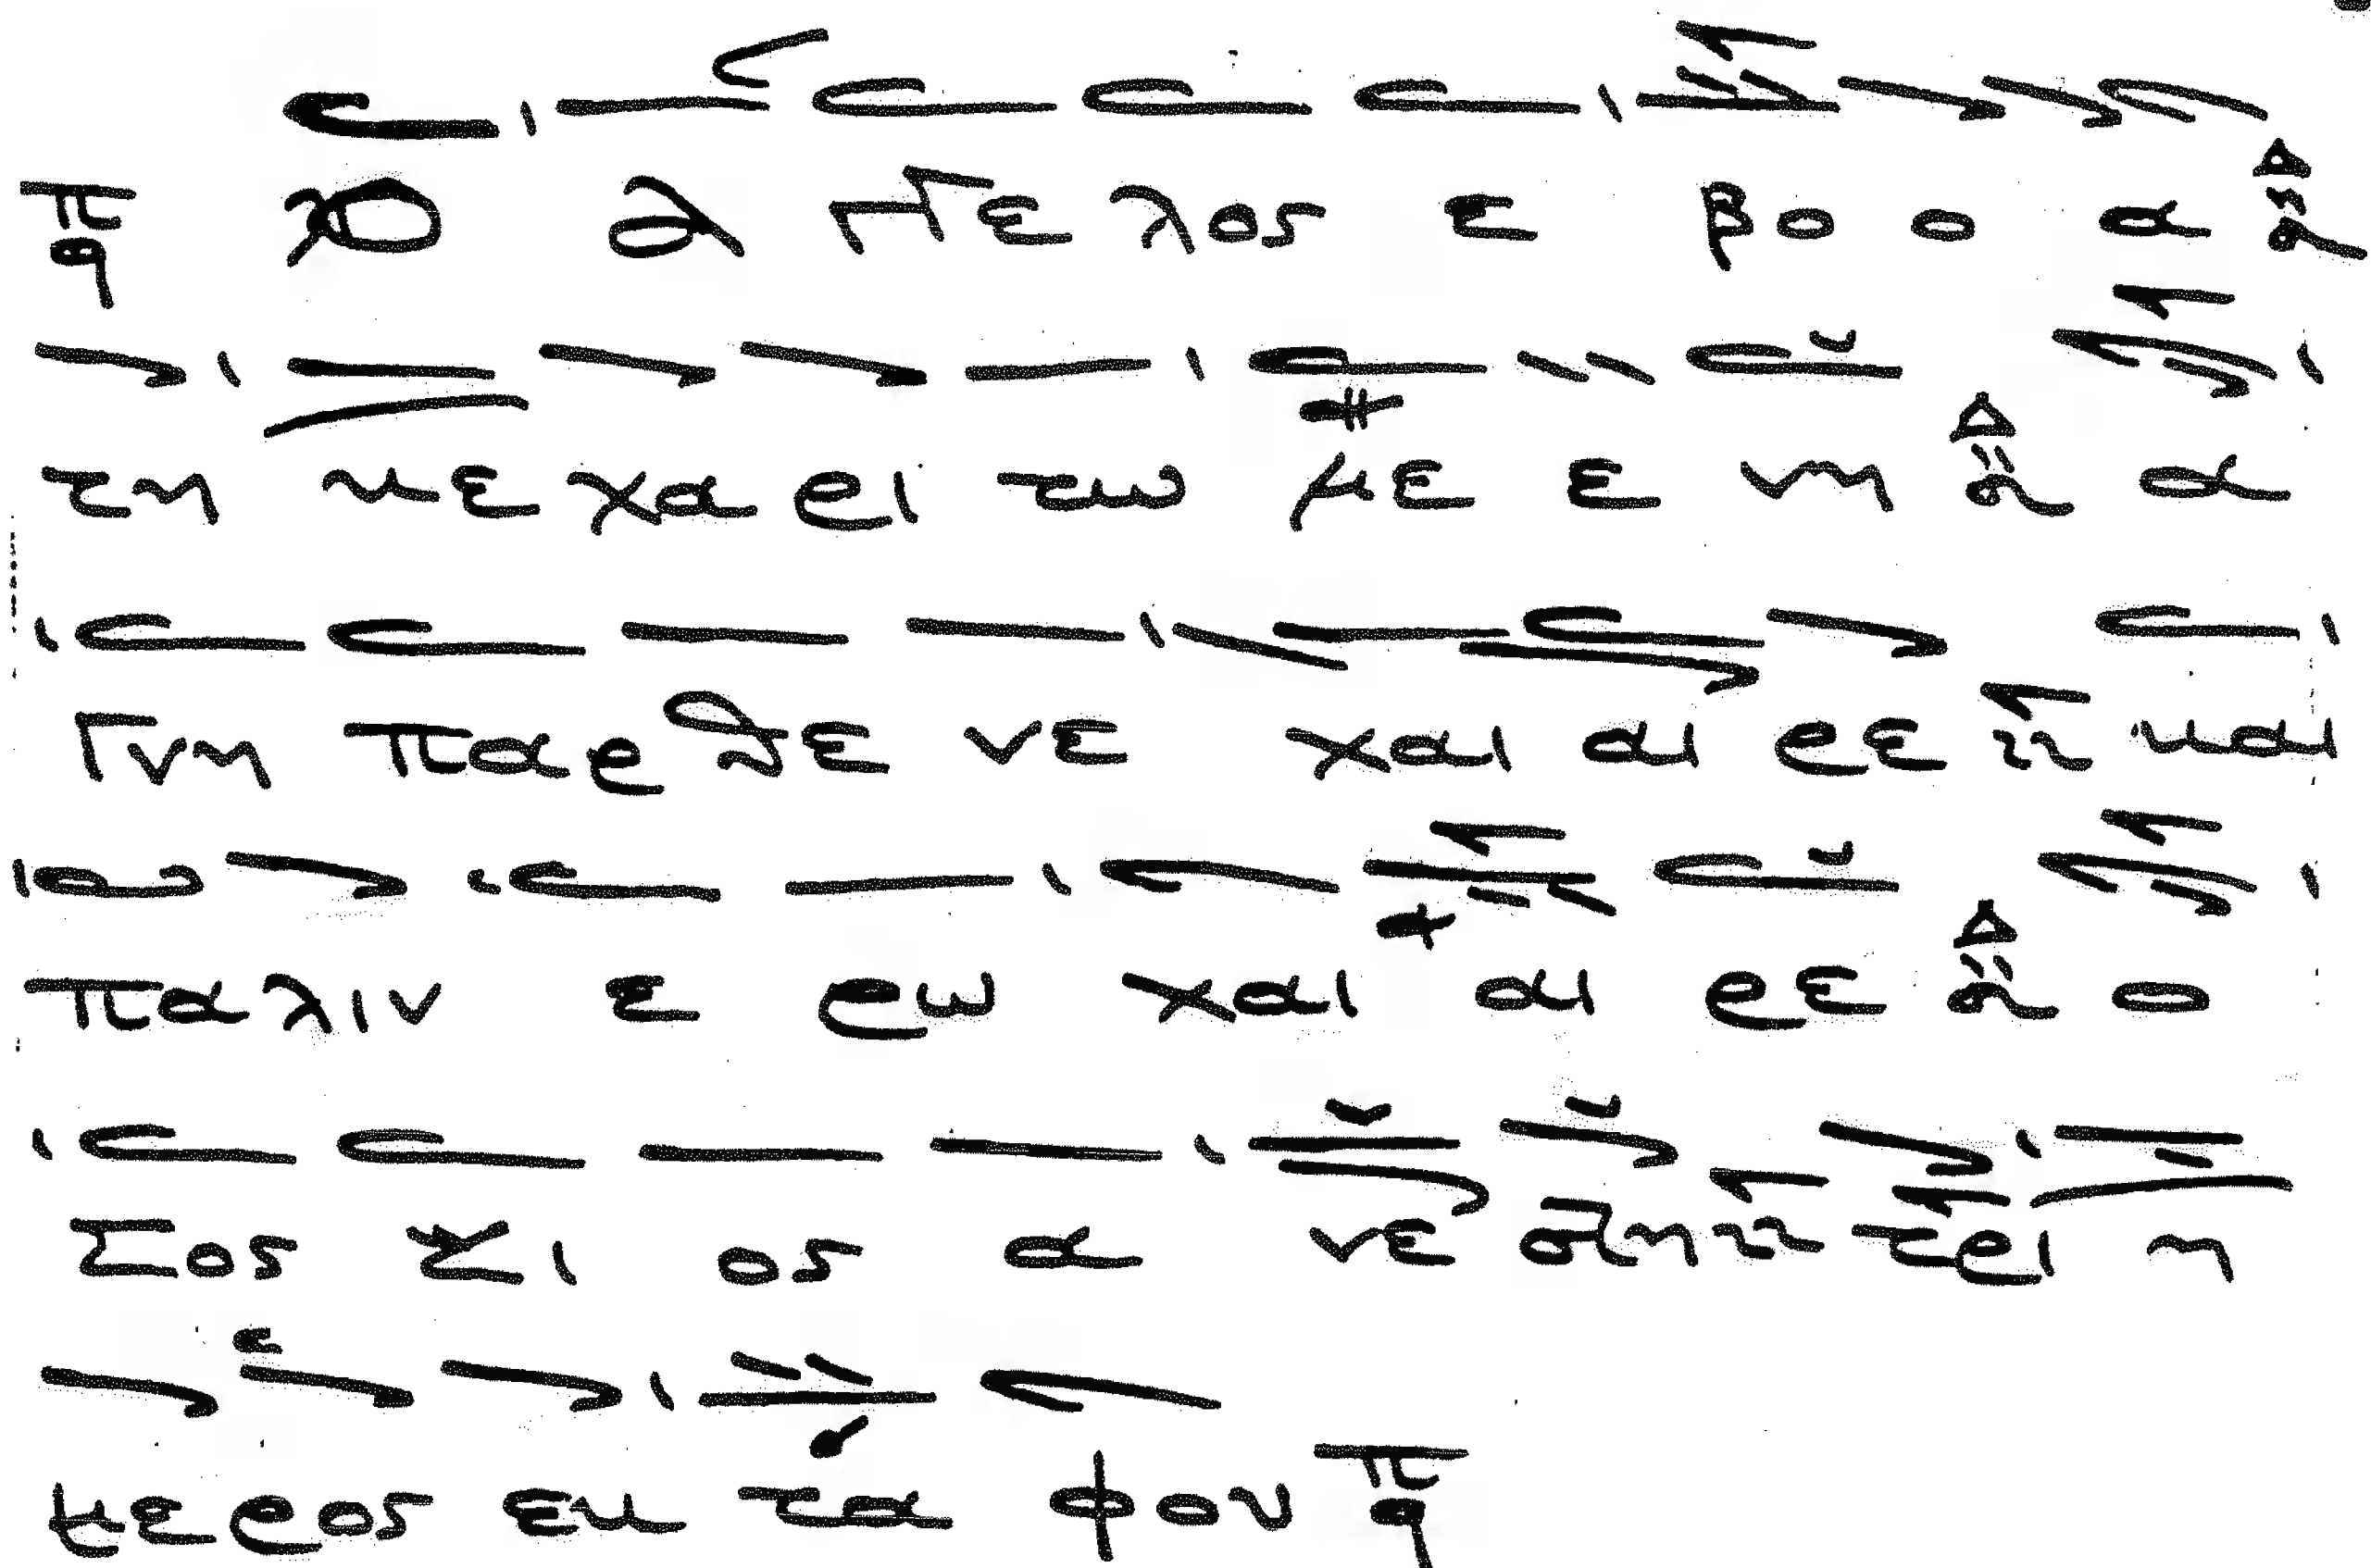 Ο α γγε λος ε βο ο α
τη κε χα ρι τω με ε νη α
γνη παρ θε νε χαι αι ρε και
πα λιν ε ρω χαι αι ρε ο
σος υι ος α νε στη τρι η
με ρος εκ τα φου